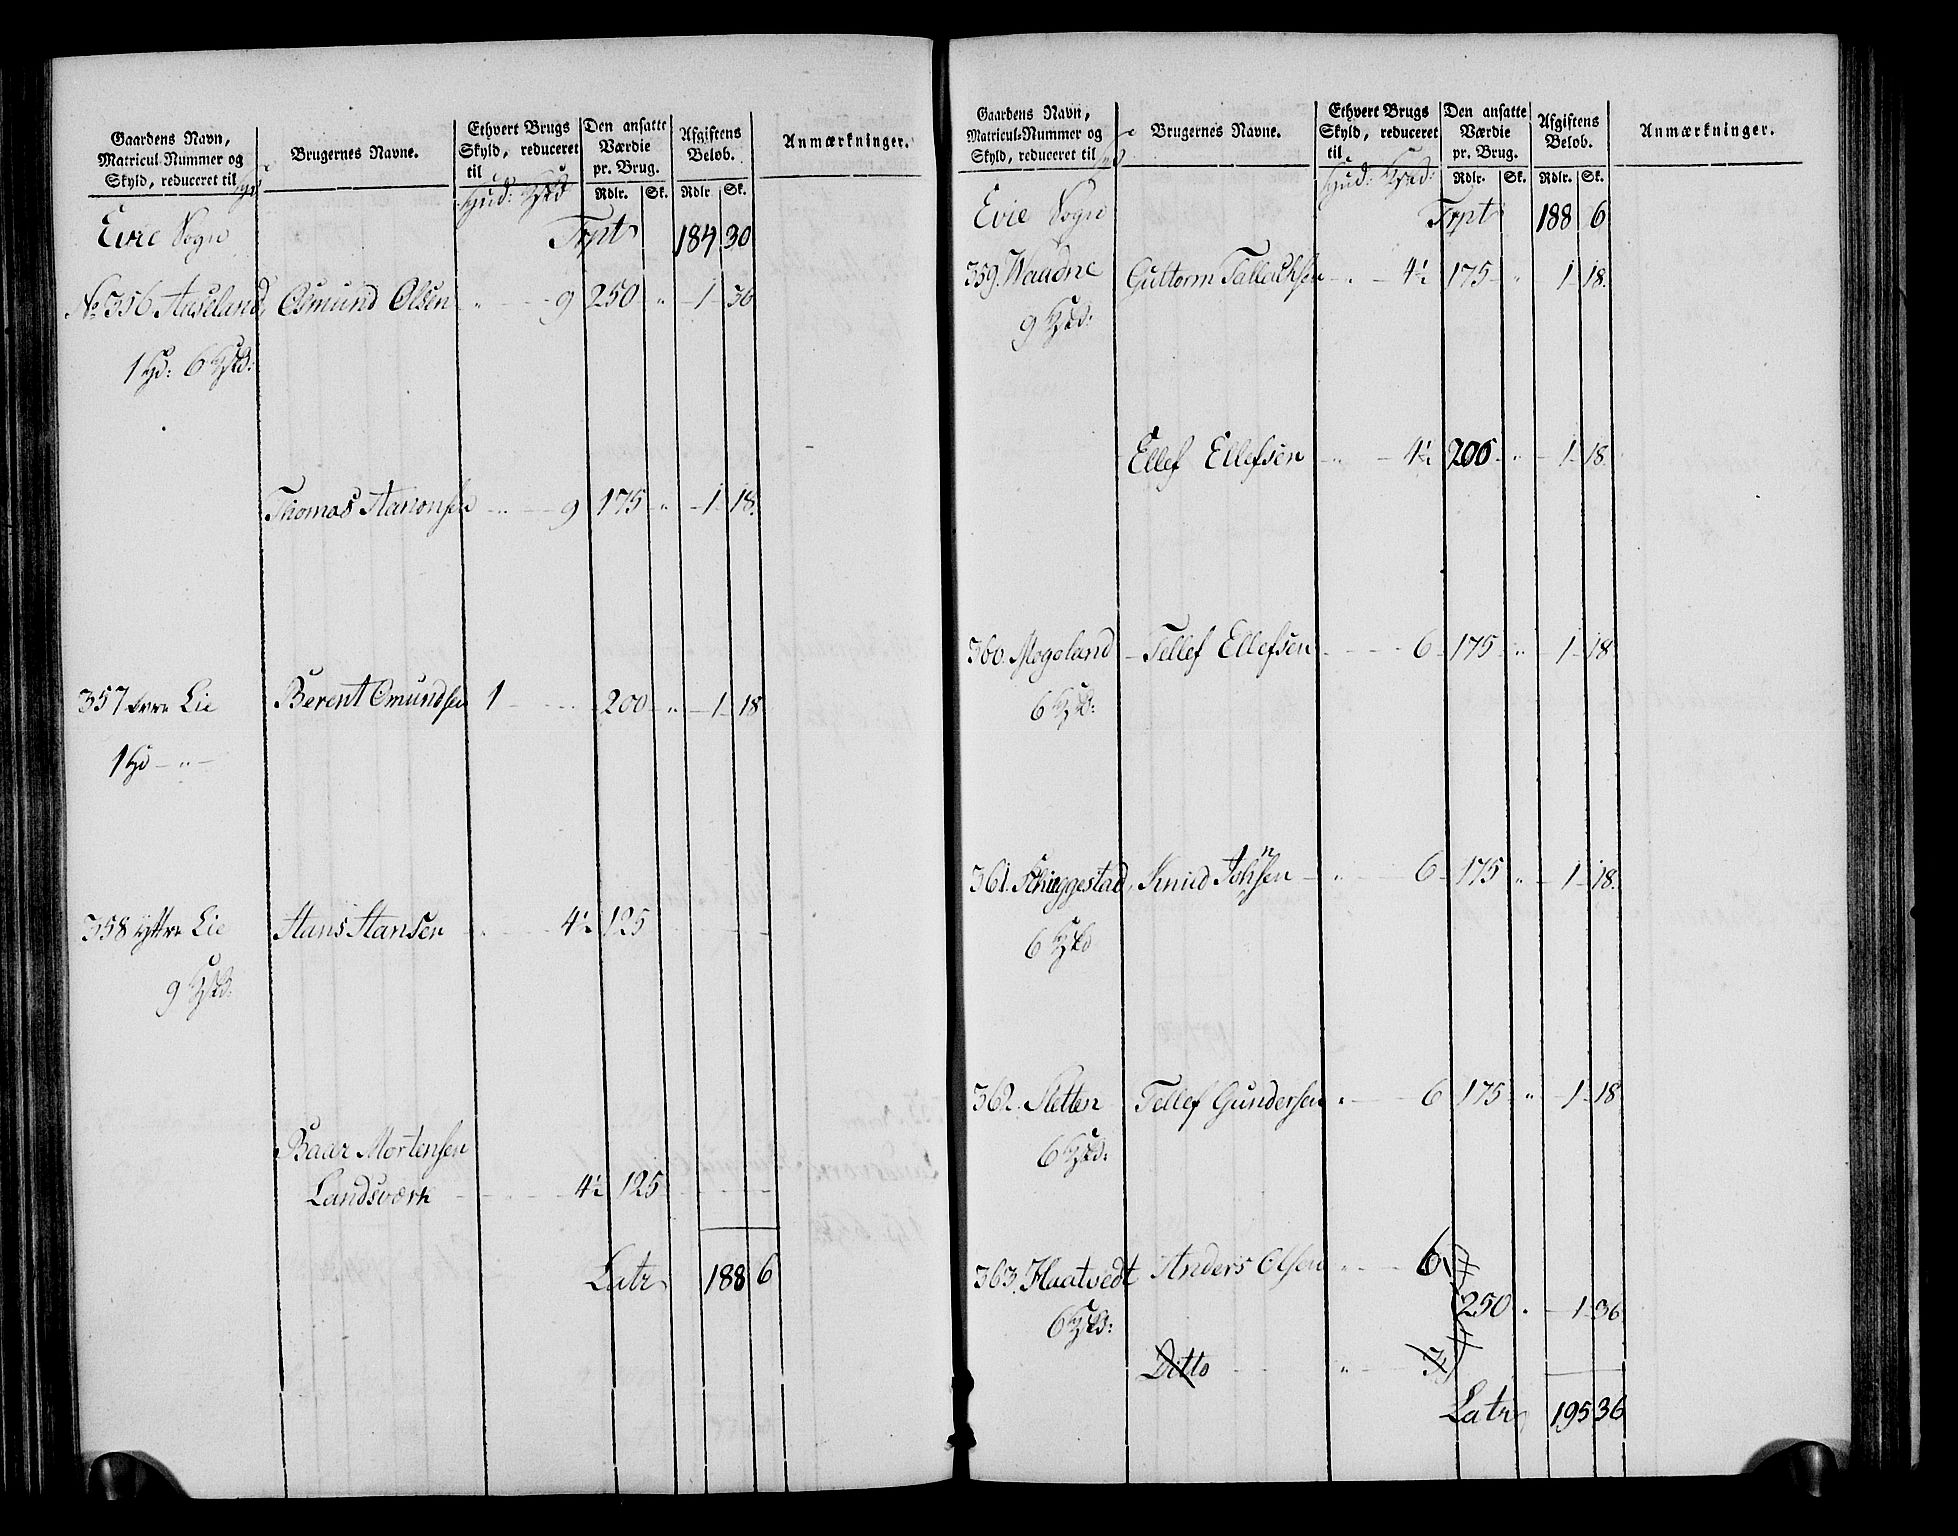 Gaardens Navn,
Matricul-Nummer og
Skyld, reduceret til
Brugernes Navne.
Ethvert Brugs
Skyld, reduceret
til
Hud:
Den ansatte
Værdie
pr. Brug.
Rdlr. Sk.
Afgiftens
Beløb.
Rdlr Sk.
Anmærkninger.
Evie Sogn Trpt 184 30
No 356. Aaseland Osmund Olsen " 9 250 " 1 36
1 Hd: 6
Thomas Aanonsen " 9 175 " 1 18.
357 Lie Berent Omundsen 1 200 " 1 18
1 Hd "
358 yttre Lie Hans Hansen 4½ 125
9
Baar Mortensen
Landsværk 4½ 125
Latr 188 6
Gaardens Navn,
Matricul-Nummer og
Skyld, reduceret til
Brugernes Navne.
Ethvert Brugs
Skyld, reduceret
til
Hud:
Den ansatte
Værdie
pr. Brug.
Rdlr. Sk.
Afgiftens
Beløb.
Rdlr. Sk.
Anmærkninger.
Evie Sogn Trpt 188 6
359. Guttorm Tallachsen " 4½ 175 " 1 18.
9
Ellef Ellefsen " 4½ 200 " 1 18.
360. Mogeland Tellef Ellefsen 6 175 " 1 18
6
361. Knud Johnsen " 6 175 " 1 18.
6
362. Sletten Tellef Gundersen " 6 175 " 1 18
6
363. Haatvedt Anders Olsen " 6
250 " 1 36
6
Ditto "
Latr 195 36